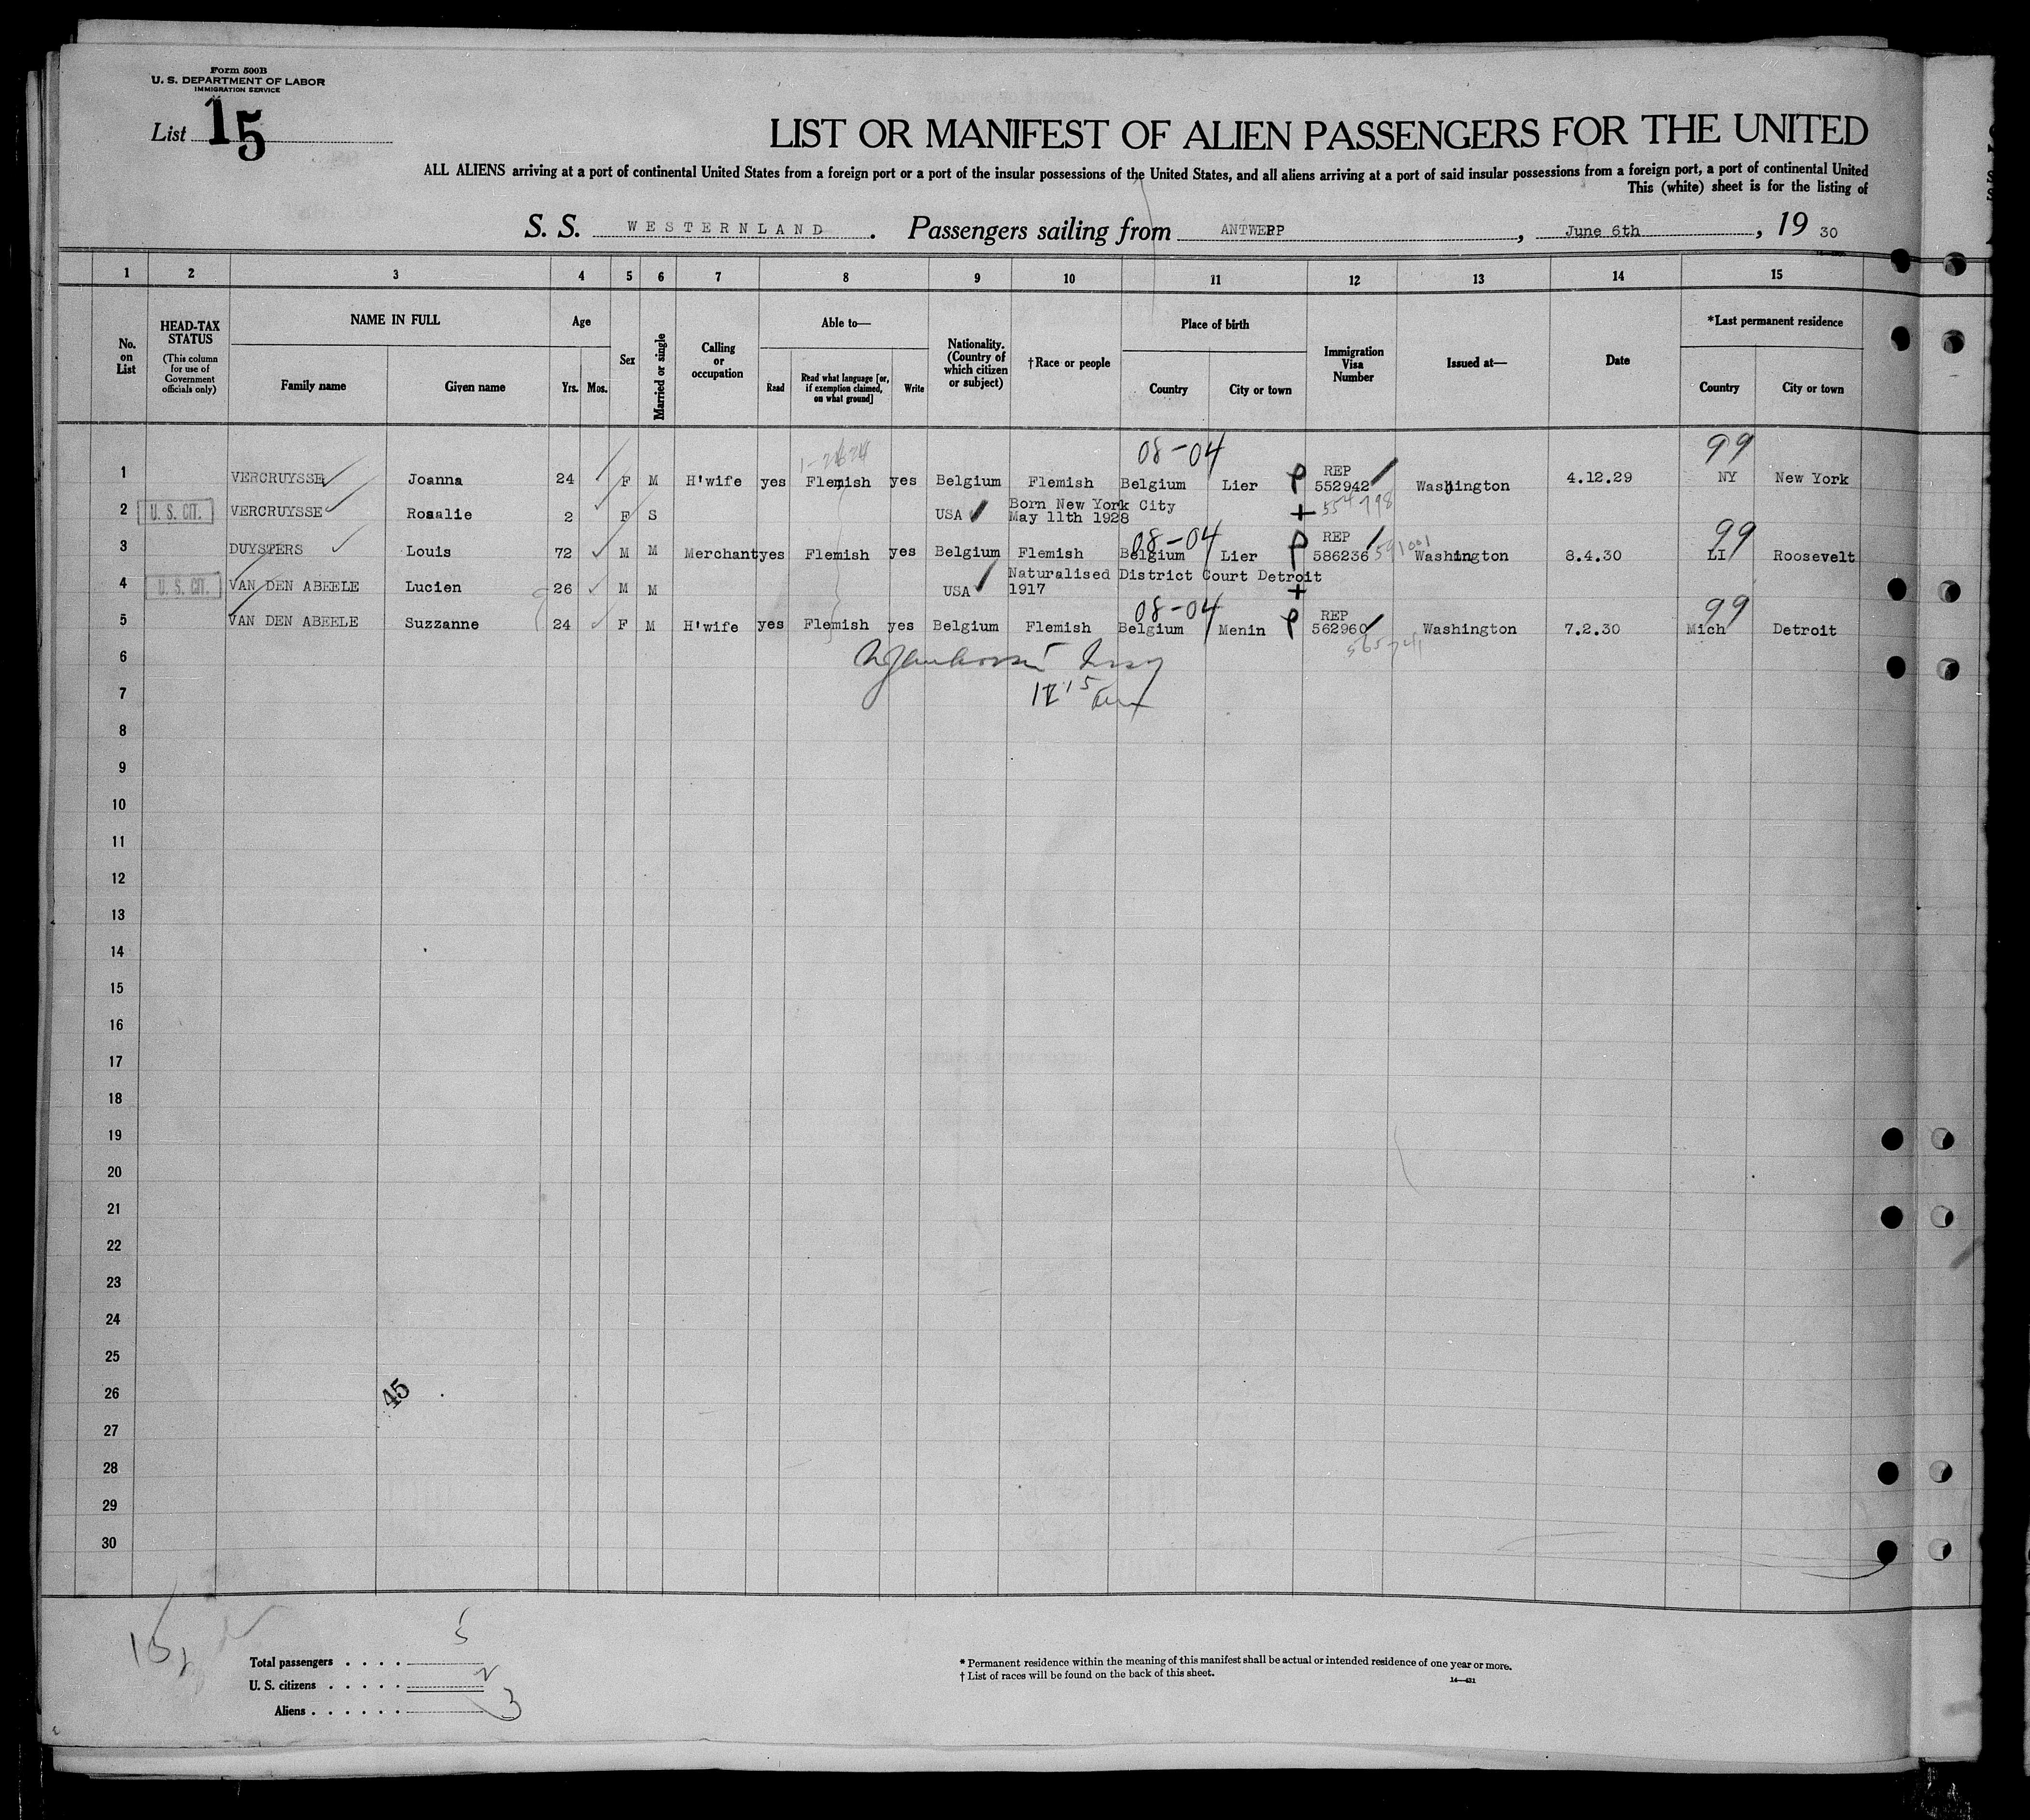 Form 500B
U. S. DEPARTMENT OF LABOR
IMMIGRATION SERVICE
List 15
LIST OR MANIFEST OF ALIEN PASSENGERS FOR THE UNITED
ALL ALIENS arriving at a port of continental United States from a foreign port or a port of the insular possessions of the United States, and all aliens arriving at a port of said insular possessions from a foreign port, a port of continental United
This (white) sheet is for the listing of
S. S. WESTERNLAND . Passengers sailing from ANTWERP , June 6th , 19 30
1 2 3 4 5 6 7 8 9 10 11 12 13 14 15
No. on List
HEAD-TAX STATUS
(This column for use of Government officials only)
NAME IN FULL
Family name Given name
Age
Yrs. Mos.
Sex
Married or single
Calling or occupation
Able to—
Read
Read what language [or, if exemption claimed, on what ground]
Write
Nationality. (Country of which citizen or subject)
†Race or people
Place of birth
Country City or town
Immigration Visa Number
Issued at—
Date
*Last permanent residence
Country City or town
08-04 99
1 VERCRUYSSE Joanna 24 F M H'wife yes Flemish yes Belgium Flemish Belgium Lier REP 552942 Washington 4.12.29 NY New York
2 U. S. CIT. VERCRUYSSE Rosalie 2 F S USA Born New York City May 11th 1928 554798
08-04 99
3 DUYSTERS Louis 72 M M Merchant yes Flemish yes Belgium Flemish Belgium Lier REP 586236 591001 Washington 8.4.30 LI Roosevelt
4 U. S. CIT. VAN DEN ABEELE Lucien 26 M M USA Naturalised District Court Detroit 1917
08-04 99
5 VAN DEN ABEELE Suzzanne 24 F M H'wife yes Flemish yes Belgium Flemish Belgium Menin REP 562960 Washington 7.2.30 Mich Detroit
6
7
8
9
10
11
12
13
14
15
16
17
18
19
20
21
22
23
24
25
26 45
27
28
29
30
Total passengers . . . . 5
U. S. citizens . . . . . 2
Aliens . . . . . . 3
* Permanent residence within the meaning of this manifest shall be actual or intended residence of one year or more.
† List of races will be found on the back of this sheet.